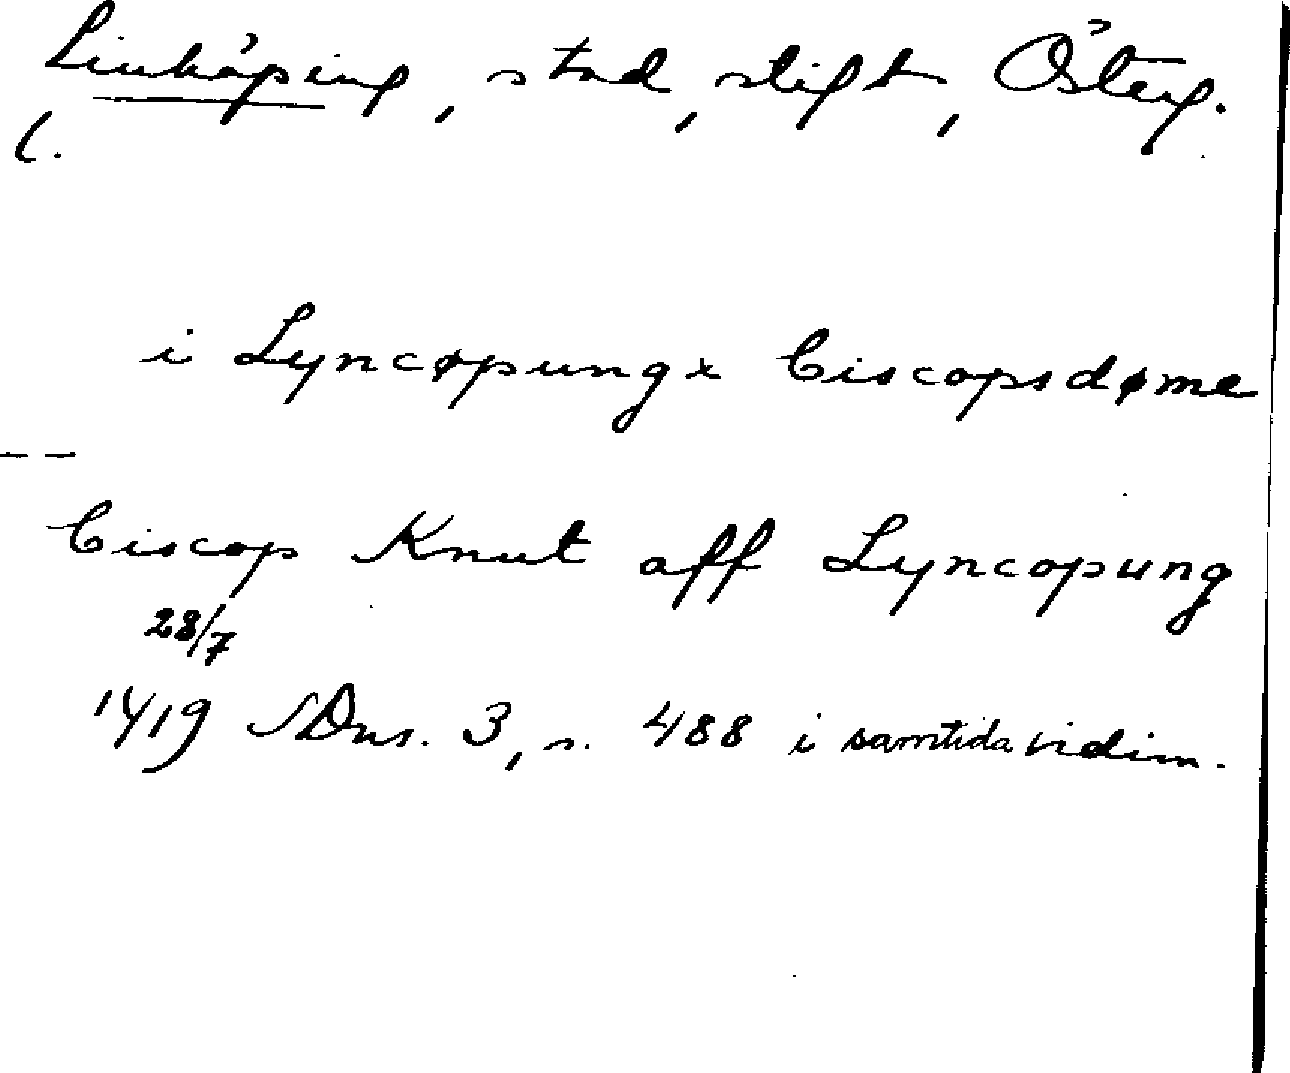 Linköping, stad, stift, Österg.
(.
i Lyncøpungx biscopsdøme
— —
biscop Knut aff Lyncopung
28/7
1419 SDns. 3, s. 488 i samtida vidim.